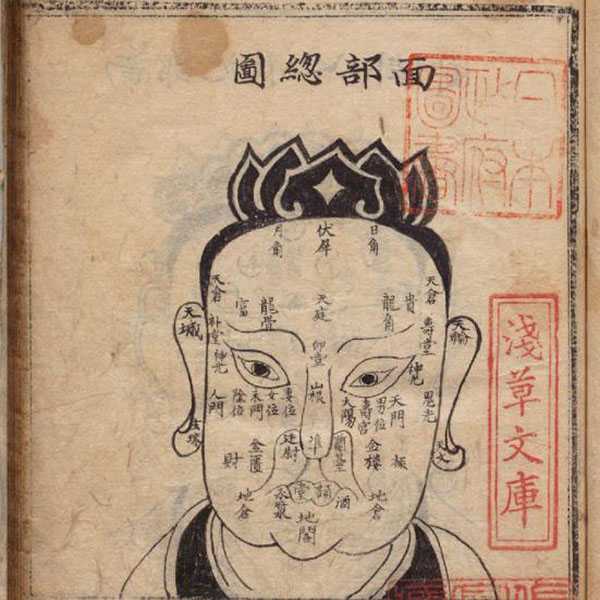 面部總圖
日本政府圖書
淺草文庫
日角
伏犀
月角
天倉
貴
龍角
天庭
龍骨
富
天倉
天輪
壽堂
印堂
天城
神光
神光
山根
天門
男位
壽宮
太陽
妻位
女位
陰位
人門
準
蘭臺
廷尉
金樓
金匱
財
地倉
酒
地倉
地閣